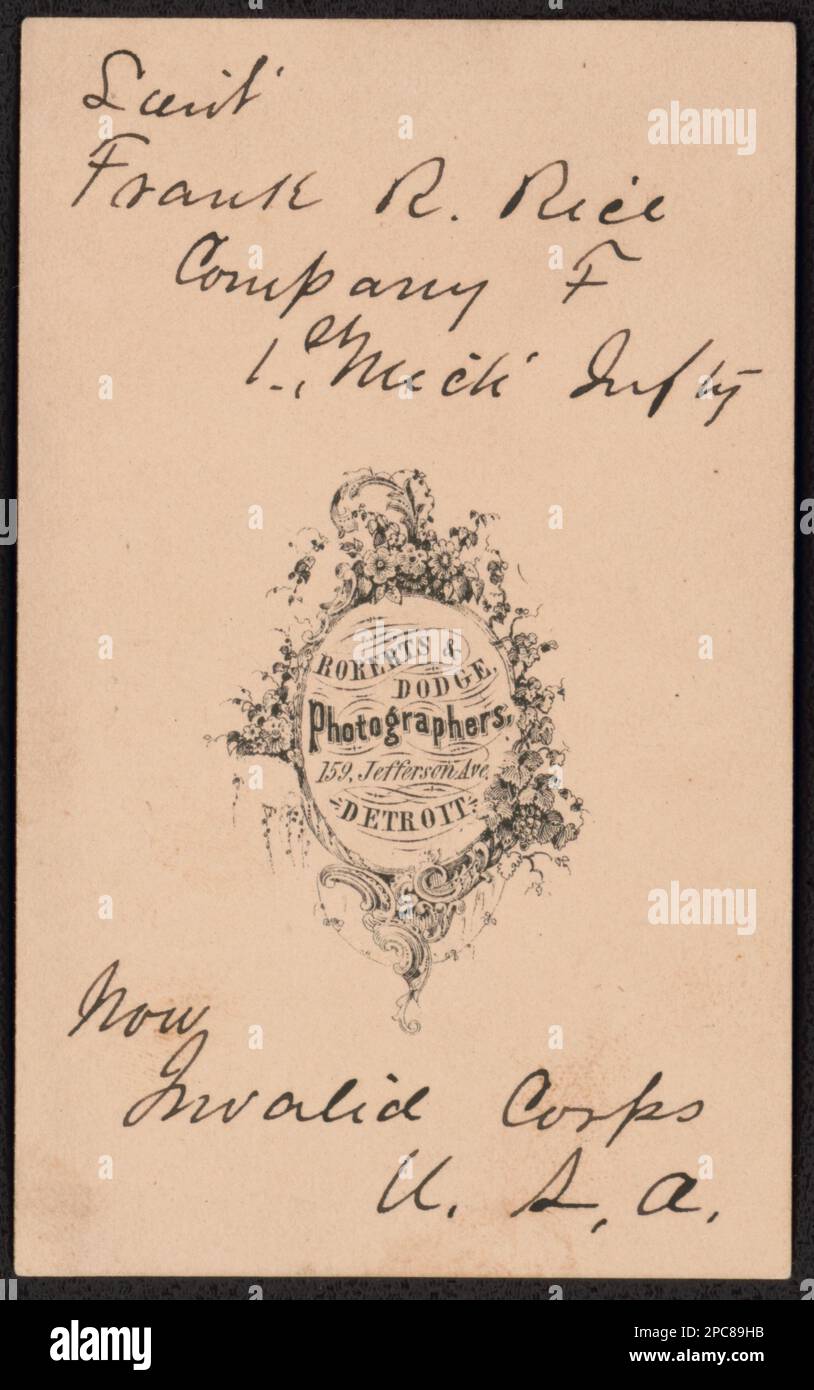 Lieut
Frank R. Rice
Company F
1st, Mich Infty
ROBERTS &
DODGE,
Photographers,
159, Jefferson Ave.
DETROIT.
Now
Invalid Corps
U. S. A.
a
alamy
alamy
Image ID: 2PC89HB
www.alamy.com